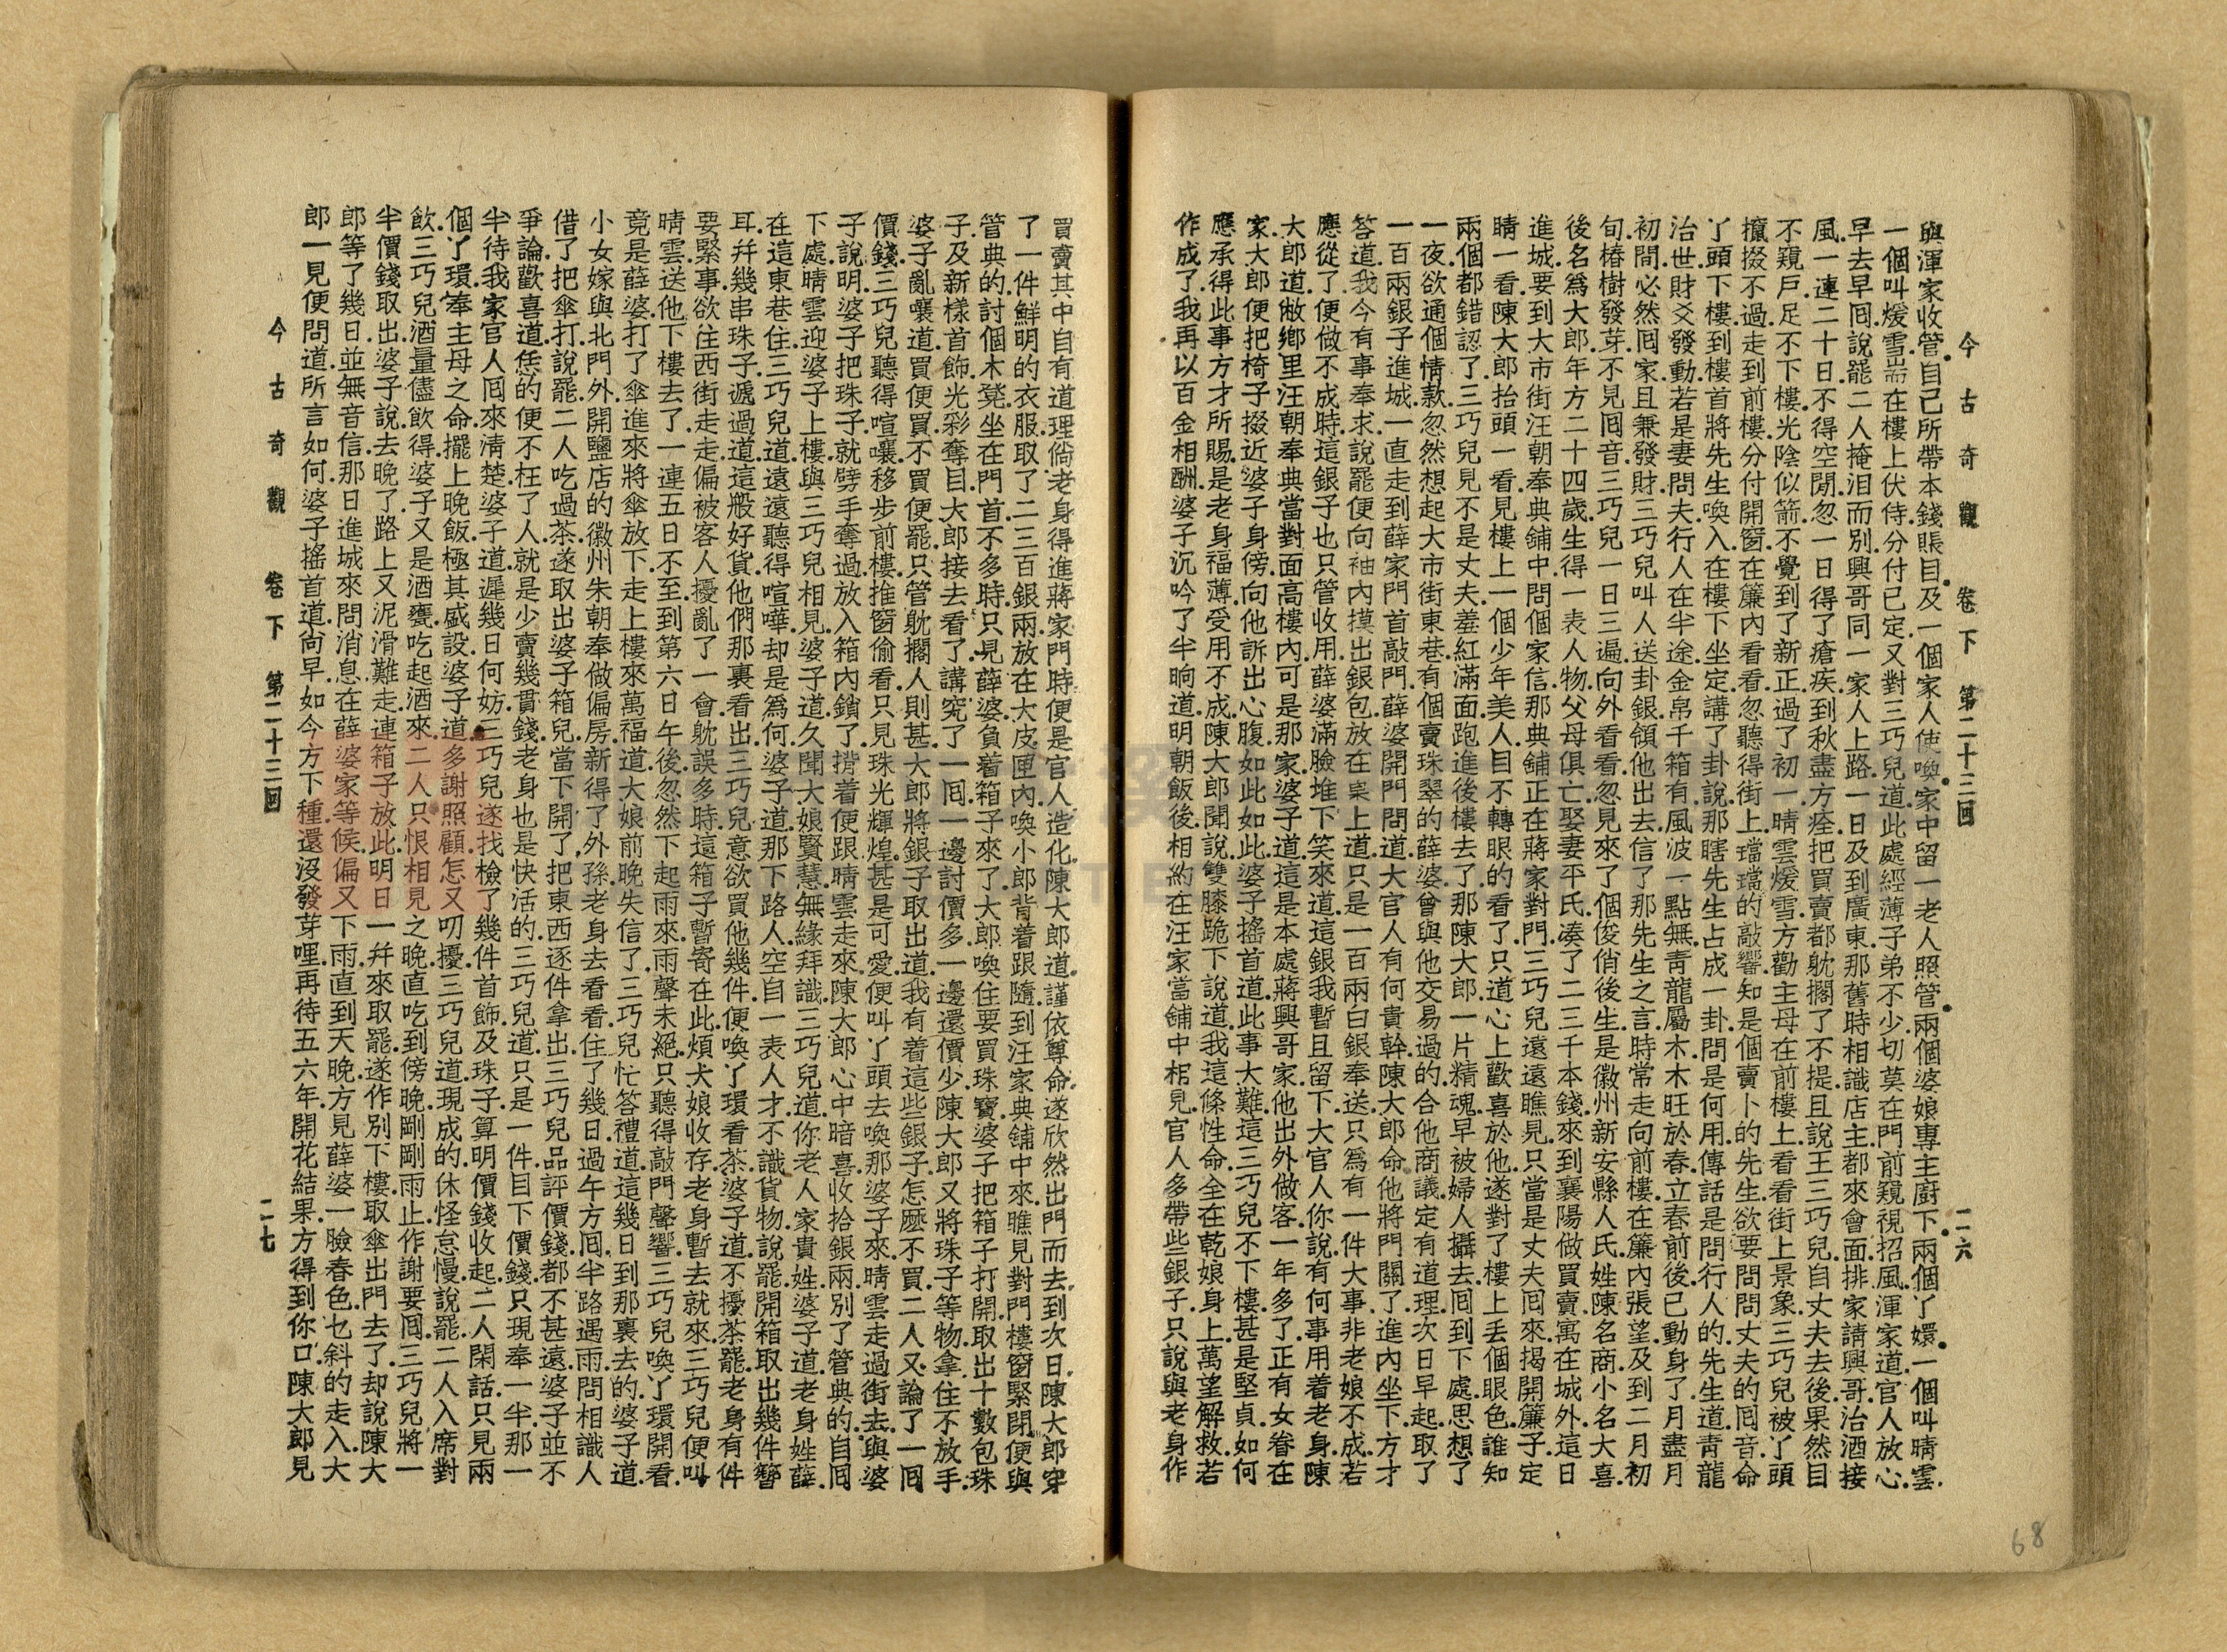 今古奇觀 卷下 第二十三回 二六
與渾家收管.自己所帶本錢賬目.及一個家人使喚.家中留一老人照管.兩個婆娘專主廚下.兩個丫嬛.一個叫晴雲.
一個叫煖雪.耑在樓上伏侍.分付已定.又對三巧兒道.此處經薄子弟不少.切莫在門前窺視.招風.渾家道.官人放心.
早去早囘.說罷.二人掩泪而別.興哥同一家人上路.一日及到廣東.那舊時相識店主.都來會面.排家請興哥.治酒接
風.一連二十日.不得空閒.忽一日得了瘡疾.到秋盡方痊.把買賣都躭擱了.不提.且說王三巧兒.自丈夫去後.果然目
不窺戶.足不下樓.光陰似箭.不覺到了新正.過了初一.晴雲煖雪.方勸主母在前樓上.看看街上景象.三巧兒被丫頭
攛掇不過.走到前樓.分付開窗.在簾內看看.忽聽得街上.璫璫的敲響.知是個賣卜的先生.欲要問問丈夫的囘音.命
丫頭下樓.到樓首.將先生喚入.在樓下坐定.講了卦說.那瞎先生占成一卦.問是何用.傳話是問行人的.先生道.青龍
治世.財爻發動.若是妻問夫.行人在半途.金帛千箱有.風波一點無.青龍屬木.木旺於春.立春前後.已動身了.月盡月
初.問必然囘家.且兼發財.三巧兒叫人送卦銀.領他出去.信了那先生之言.時常走向前樓.在簾內張望.及到二月初
旬.椿樹發芽.不見囘音.三巧兒一日三遍.向外看看.忽見來了個俊俏後生.是徽州新安縣人氏.姓陳名商.小名大喜.
後名爲大郎.年方二十四歲.生得一表人物.父母俱亡.娶妻平氏.湊了二三千本錢.來到襄陽.做買賣.寓在城外.這日
進城.要到大市街汪朝奉典鋪中.問個家信.那典鋪正在蔣家對門.三巧兒遠遠瞧見.只當是丈夫囘來.揭開簾子.定
睛一看.陳大郎抬頭一看.見樓上一個少年美人.目不轉眼的看了.只道心上歡喜於他.遂對了樓上.丟個眼色.誰知
兩個都錯認了.三巧兒見不是丈夫.羞紅滿面.跑進後樓去了.那陳大郎一片精魂.早被婦人攝去.囘到下處.思想了
一夜.欲通個情款.忽然想起大市街東巷.有個賣珠翠的薛婆.曾與他交易過的.合他商議.定有道理.次日早起.取了
一百兩銀子.進城.一直走到薛家門首.敲門.薛婆開門.問道.大官人有何貴幹.陳大郎命他將門關了.進內坐下.方才
答道.我今有事奉求.說罷.便向袖內.摸出銀包.放在桌上道.只是一百兩白銀奉送.只爲有一件大事.非老娘不成.若
應從了.便做不成時.這銀子也只管收用.薛婆滿臉堆下.笑來道.這銀我暫且留下.大官人你說有何事.用着老身.陳
大郎道.敝鄉里汪朝奉典當對面高樓內.可是那家.婆子道.這是本處蔣興哥家.他出外做客.一年多了.正有女眷在
家.大郎便把椅子掇近婆子身傍.向他訴出心腹.如此如此.婆子搖首道.此事大難.這三巧兒不下樓.甚是堅貞.如何
應承得此事.方才所賜.是老身福薄.受用不成.陳大郎聞說.雙膝跪下說道.我這條性命.全在乾娘身上.萬望解救.若
作成了.我再以百金相酬.婆子沉吟了半晌道.明朝飯後.相約在汪家當鋪中相見.官人多帶些銀子.只說與老身作
買賣.其中自有道理.倘老身得進蔣家門時.便是官人造化.陳大郎道.謹依尊命.遂欣然出門而去.到次日.陳大郎穿
了一件鮮明的衣服.取了二三百銀兩.放在大皮匣內.喚小郎背着.跟隨到汪家典鋪中來.瞧見對門樓窗緊閉.便與
管典的討個木凳.坐在門首.不多時.只見薛婆負着箱子來了.大郎喚住.要買珠寶.婆子把箱子打開.取出十數包珠
子.及新樣首飾.光彩奪目.大郎接去看了.講究了一囘.一邊討價多.一邊還價少.陳大郎又將珠子等物.拿住不放手.
婆子亂嚷道.買便買.不買便罷.只管躭擱人則甚.大郎將銀子取出道.我有着這些銀子.怎麽不買.二人又論了一囘
價錢.三巧兒聽得喧嚷.移步前樓.推窗偷看.只見珠光輝煌.甚是可愛.便叫丫頭去喚那婆子來.晴雲走過街去.與婆
子說明.婆子把珠子.就劈手奪過.放入箱內鎖了.揹着便跟晴雲走來.陳大郎心中暗喜.收拾銀兩.別了管典的.自囘
下處.晴雲迎婆子上樓.與三巧兒相見.婆子道.久聞大娘賢慧.無緣拜識.三巧兒道.你老人家貴姓.婆子道.老身姓薛.
在這東巷住.三巧兒道.遠遠聽得喧嘩.却是爲何.婆子道.那下路人.空自一表人才.不識貨物.說罷.開箱取出幾件簪
耳.幷幾串珠子.遞過道.這般好貨.他們那裏看出.三巧兒意欲買他幾件.便喚丫環看茶.婆子道.不擾茶罷.老身有件
要緊事.欲住西街走走.偏被客人擾亂了一會.躭誤多時.這箱子暫寄在此.煩大娘收存.老身暫去就來.三巧兒便叫
晴雲送他下樓去了.一連五日不至.到第六日午後.忽然下起雨來.雨聲未絕.只聽得敲門聲響.三巧兒喚丫環開看.
竟是薛婆.打了傘進來.將傘放下.走上樓來.萬福道.大娘前晚失信了.三巧兒忙答禮道.這幾日到那裏去的.婆子道.
小女嫁與北門外開鹽店的徽州朱朝奉.做偏房.新得了外孫.老身去看看.住了幾日.過午方囘.半路遇雨.問相識人
借了把傘打.說罷.二人吃過茶.遂取出婆子箱兒.當下開了.把東西逐件拿出.三巧兒品評價錢.都不甚遠.婆子並不
爭論.歡喜道.恁的便不枉了人.就是少賣幾貫錢.老身也是快活的.三巧兒道.只是一件.目下價錢.只現奉一半.那一
半待我家官人囘來清楚.婆子道.遲幾日何妨.三巧兒遂找檢了幾件首飾及珠子.算明價錢收起.二人閑話.只見兩
個丫環.奉主母之命.擺上晚飯.極其盛設.婆子道.多謝照顧.怎又叨擾.三巧兒道.現成的.休怪怠慢.說罷.二人入席對
飲.三巧兒酒量儘飲得.婆子又是酒甕.吃起酒來.二人只恨相見之晚.直吃到傍晚.剛剛雨止.作謝要囘.三巧兒將一
半價錢取出.婆子說去晚了.路上又泥滑難走.連箱子放此.明日一幷來取罷.遂作別下樓.取傘出門去了.却說陳大
郎等了幾日.並無音信.那日進城來問消息.在薛婆家等候.偏又下雨.直到天晚.方見薛婆一臉春色.乜斜的走入.大
郎一見便問道.所言如何.婆子搖首道.尙早.如今方下種.還沒發芽哩.再待五六年.開花結果.方得到你口.陳大郎見
今古奇觀 卷下 第二十三回 二七
68